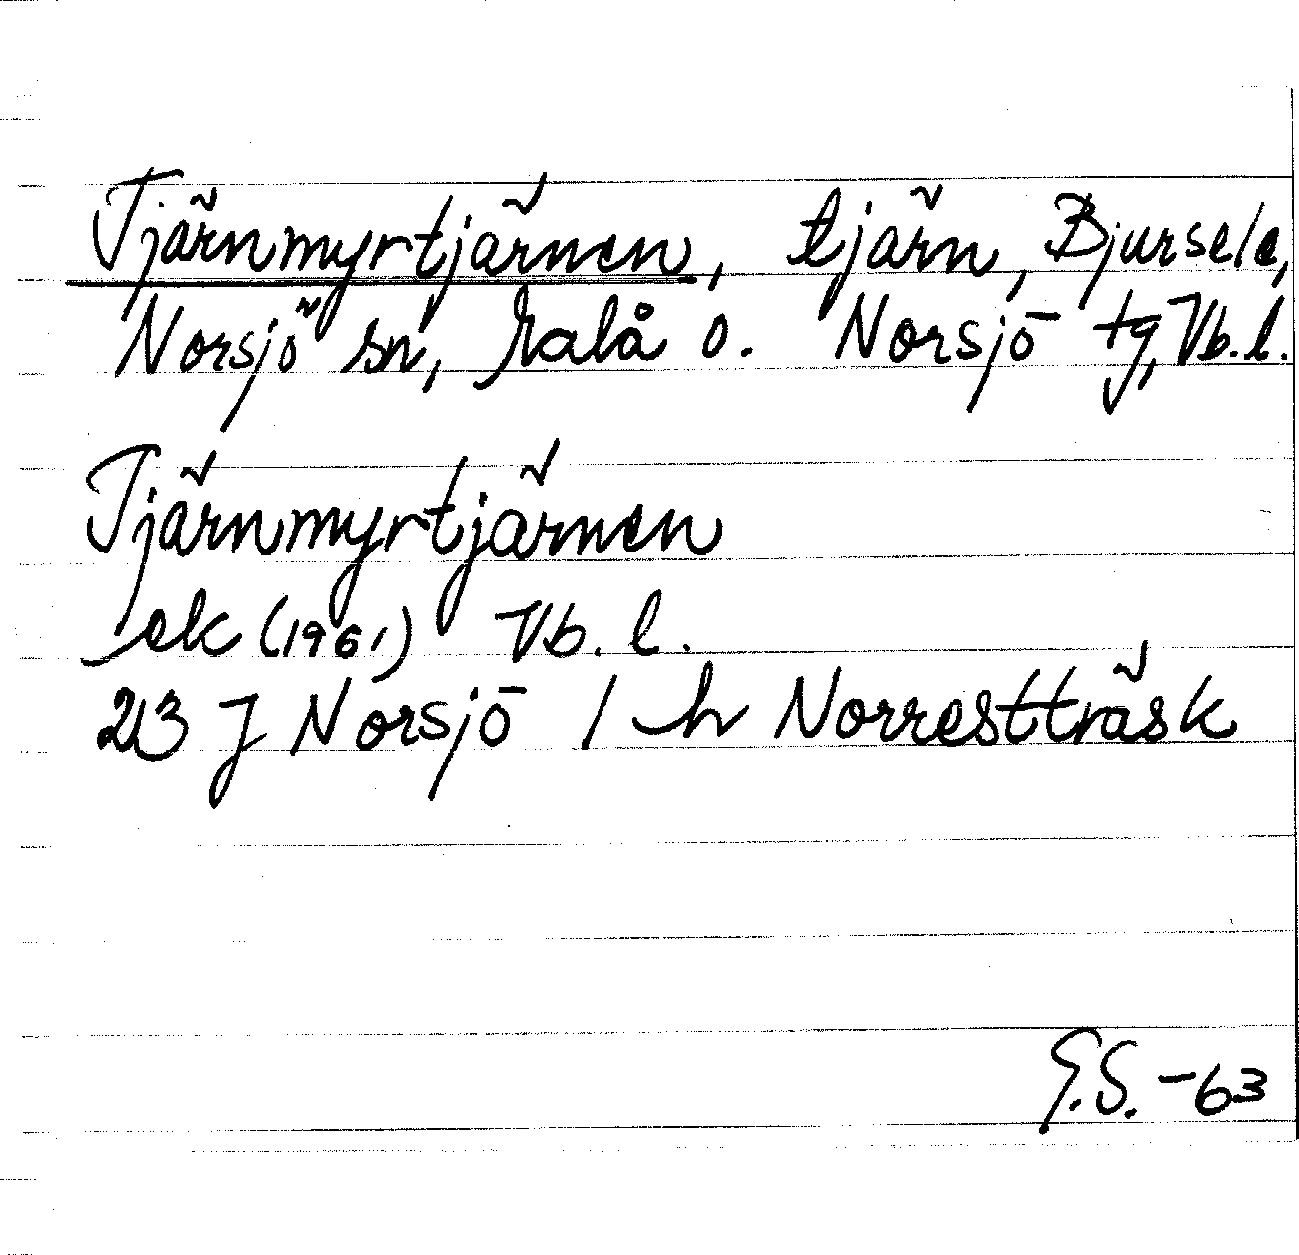 Tjärnmyrtjärnen, tjärn, Bjursele,
Norsjö sn, Malå o. Norsjö tg, Vb. l.
Tjärnmyrtjärnen
ek (1961) Vb. l.
23 J Norsjö / h Norrestträsk
G.S. -63